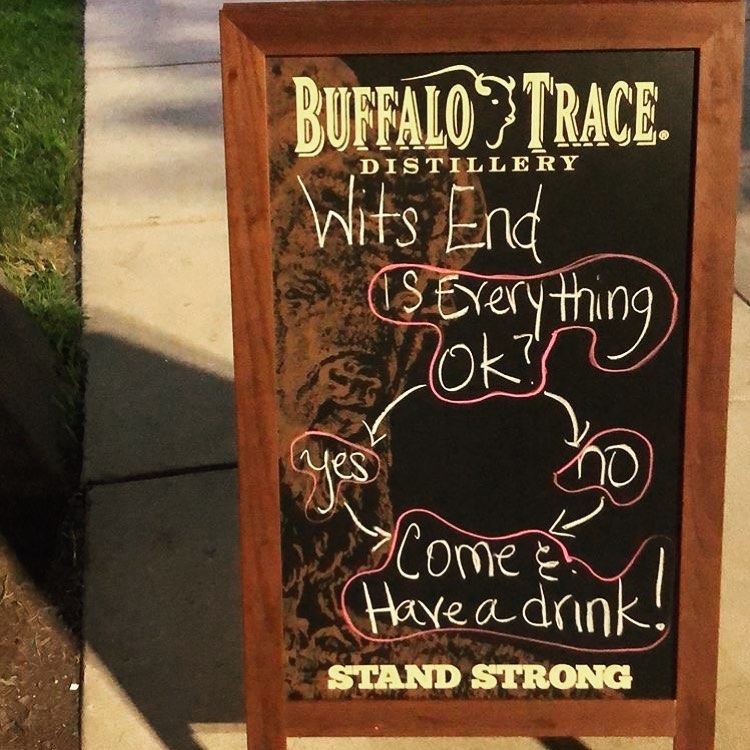 BUFFALO TRACE®
DISTILLERY
Wits End
Is Everything
Ok?
yes no
Come &
Have a drink!
STAND STRONG